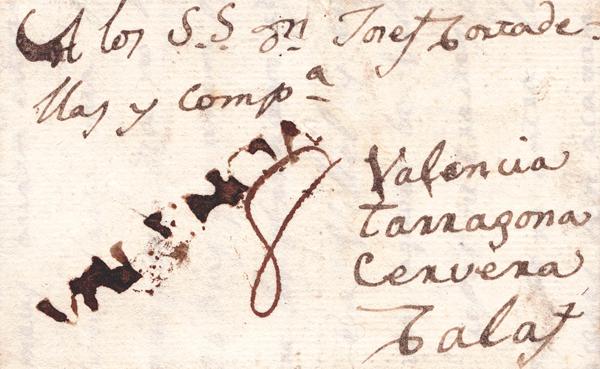 A los S.S. Dn Josef Cortade-
llas y Compª
8
Valencia
Tarragona
Cervera
Calaf